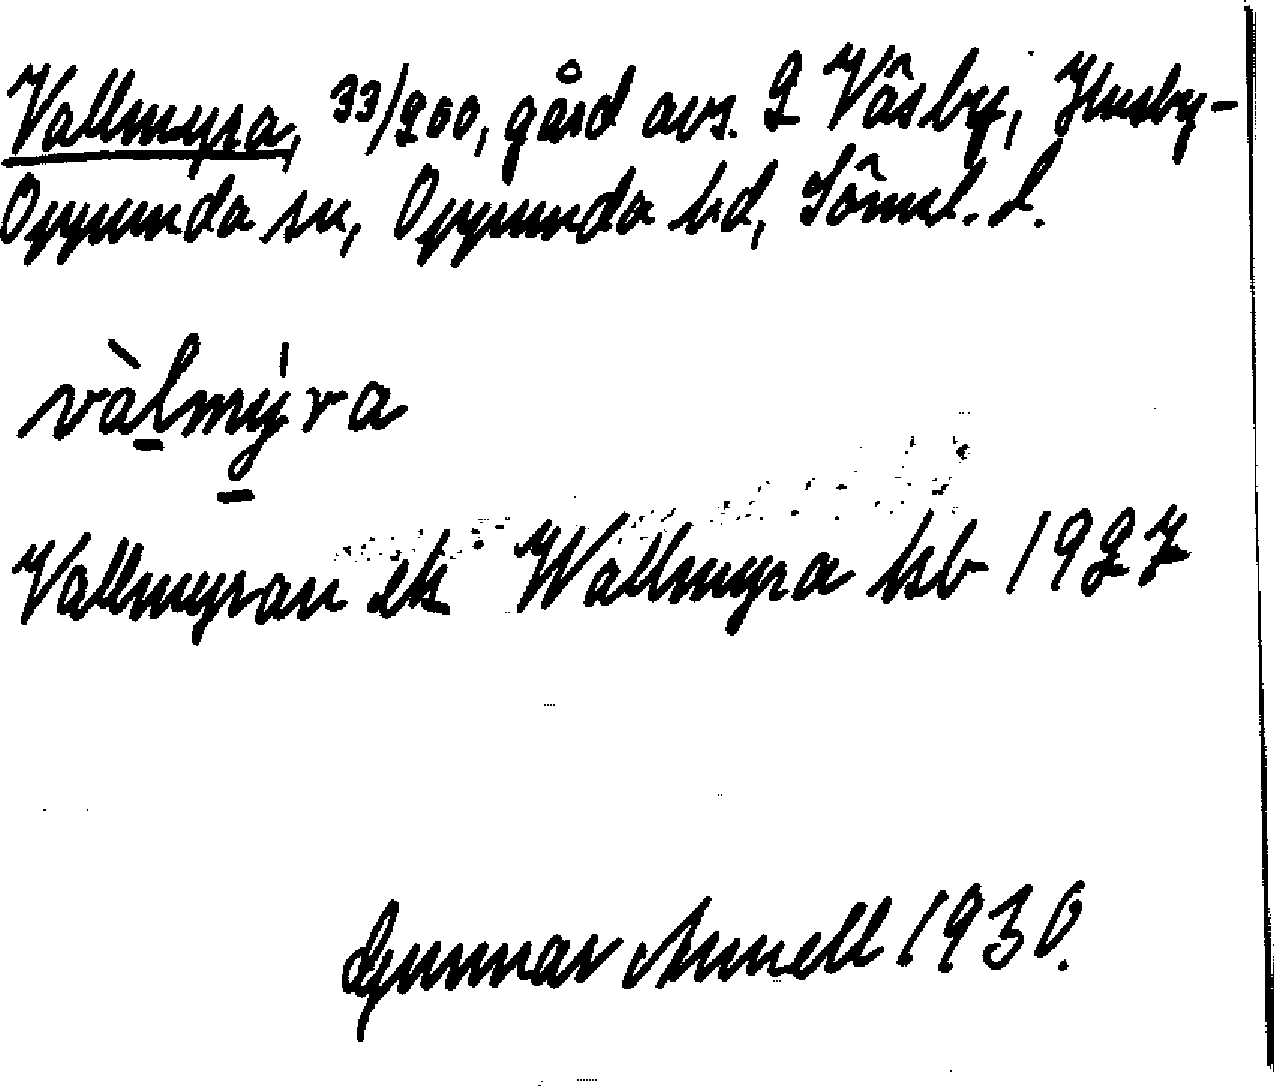 Vallmyra, 33/200, gård avs. 2 Väsby, Husby-
Oppunda sn, Oppunda hd, Söml. l.
vàlmýra
Vallmyran ek Wallmyra hsb 1927
Gunnar Annell 1930.